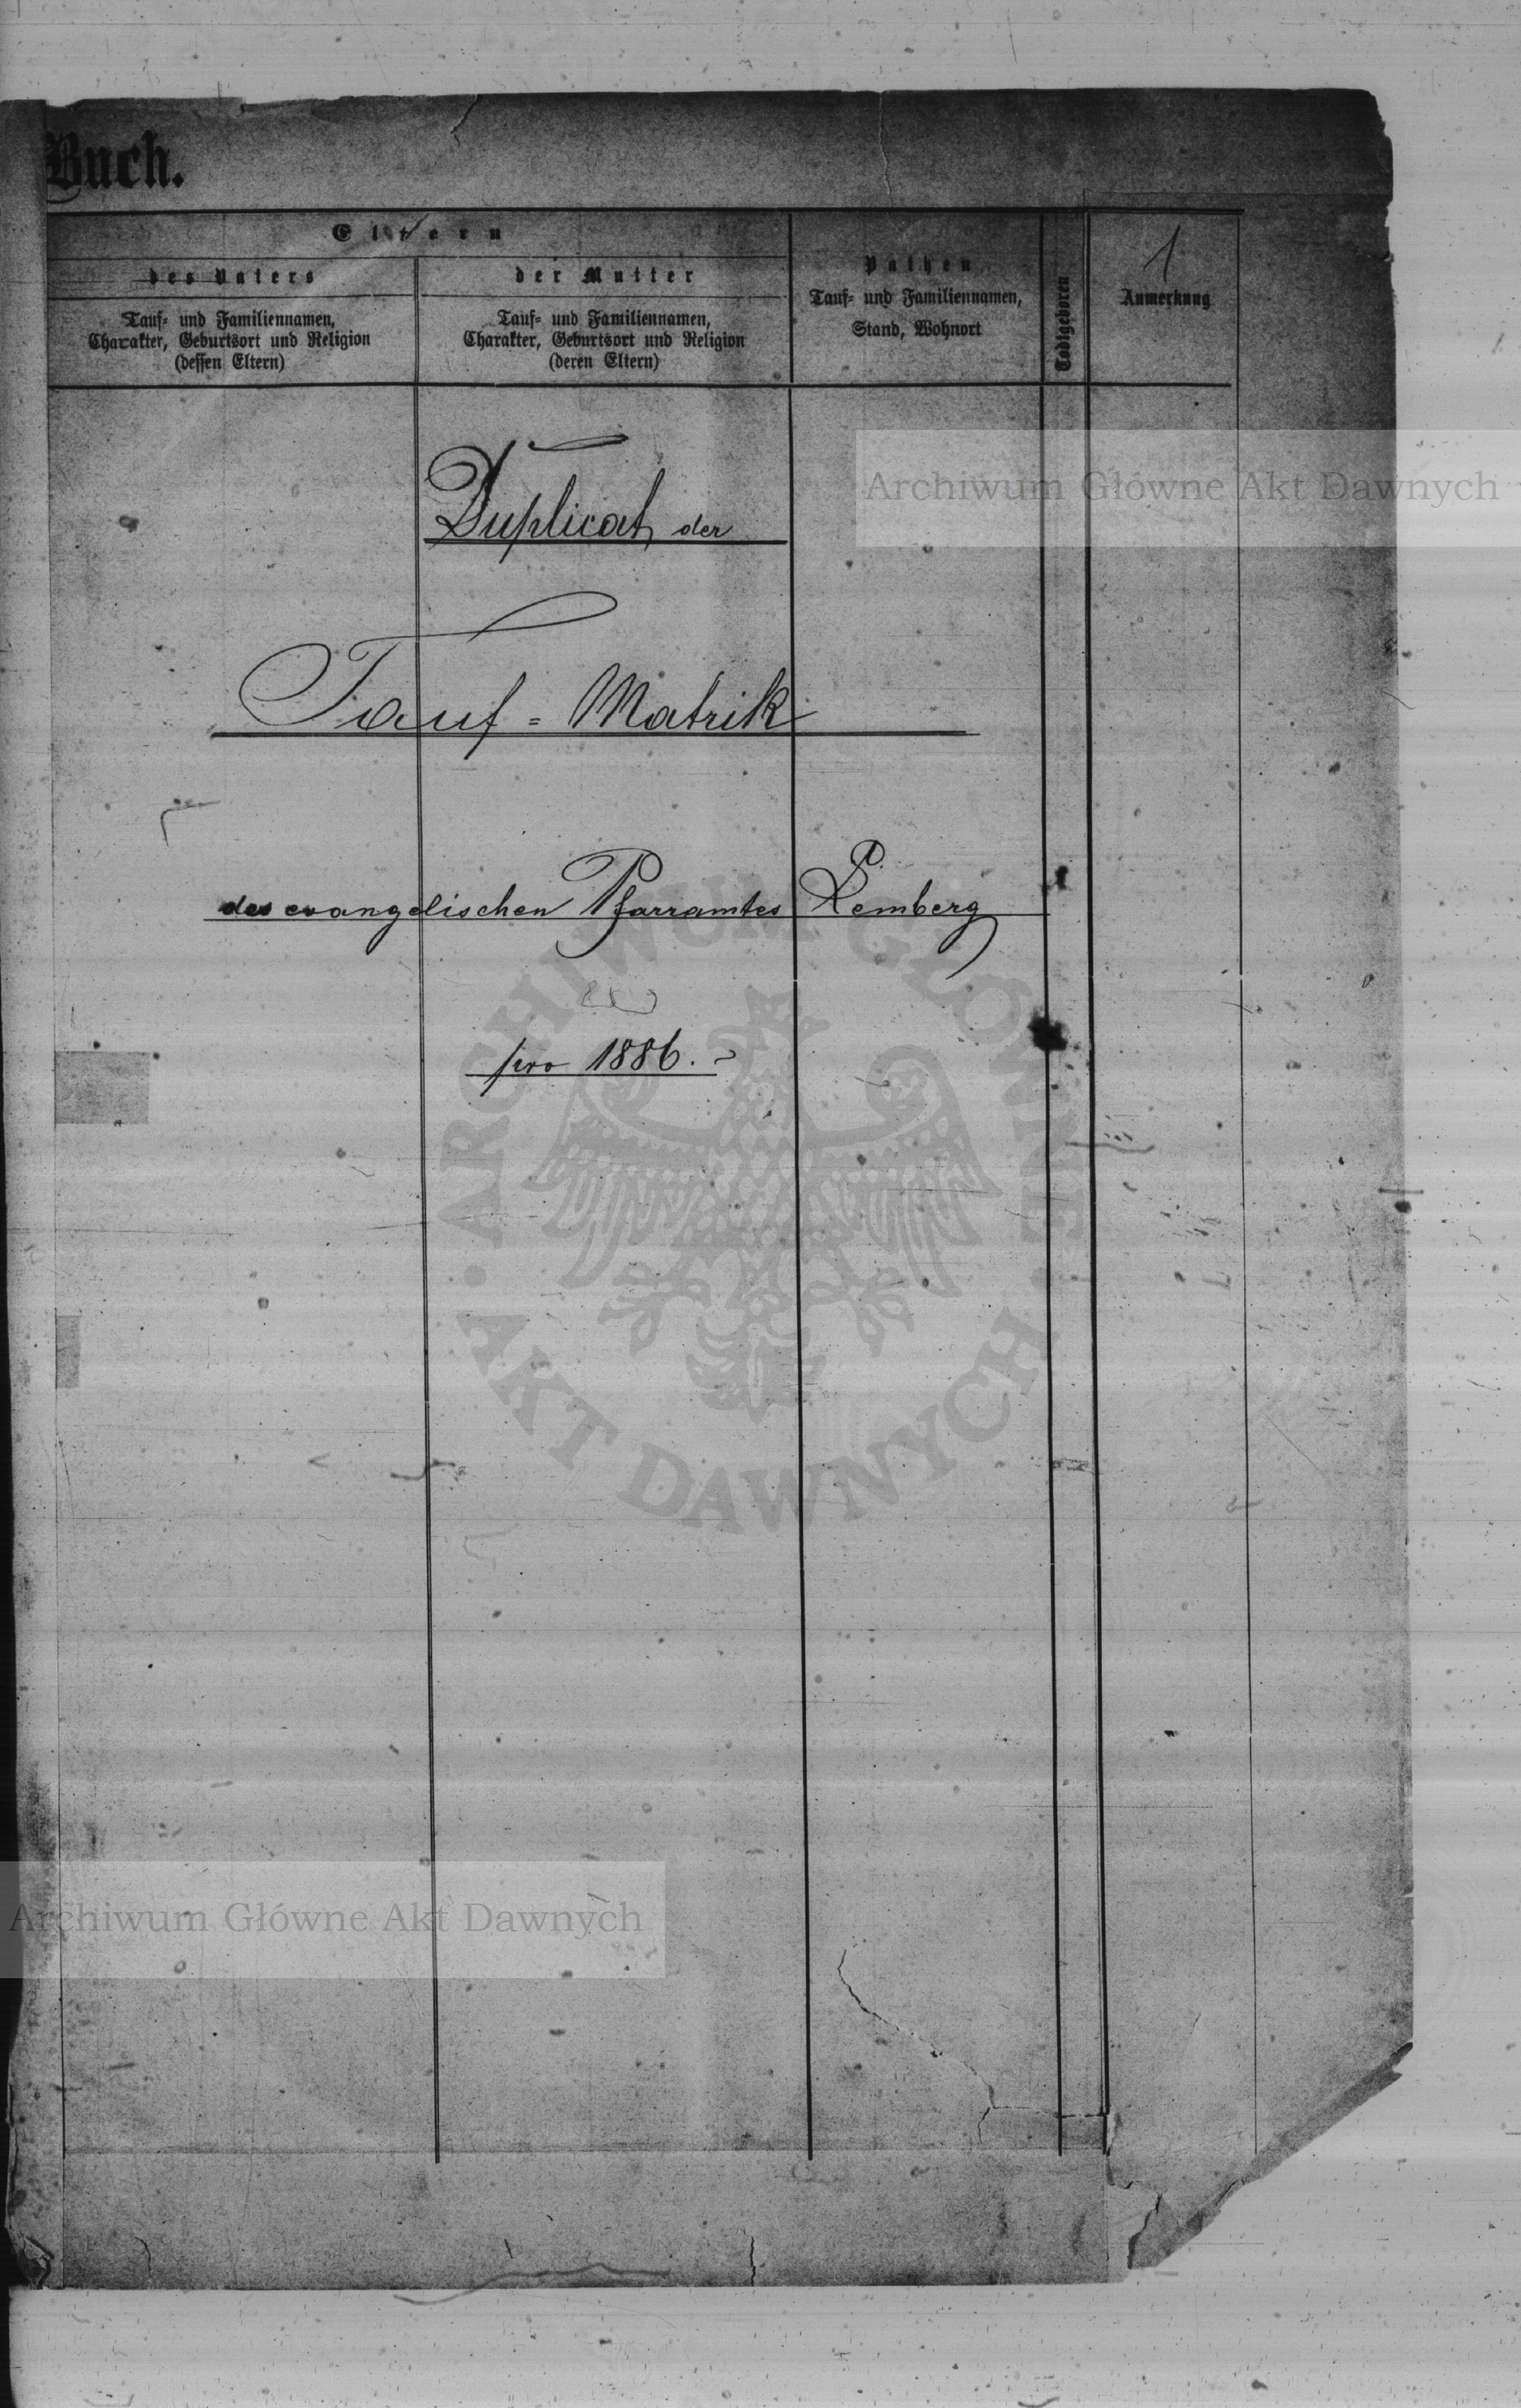 Buch.
Eltern
des Vaters
der Mutter
Pathen
Tauf- und Familiennamen,
Stand, Wohnort
Todtgeboren
1
Anmerkung
Tauf- und Familiennamen,
Charakter, Geburtsort und Religion
(dessen Eltern)
Tauf- und Familiennamen,
Charakter, Geburtsort und Religion
(deren Eltern)
Duplicat der
Archiwum Główne Akt Dawnych
Tauf = Matrik
des evangelischen Pfarramtes Lemberg
pro 1886.
ARCHIWUM GŁÓWNE • AKT DAWNYCH •
Archiwum Główne Akt Dawnych